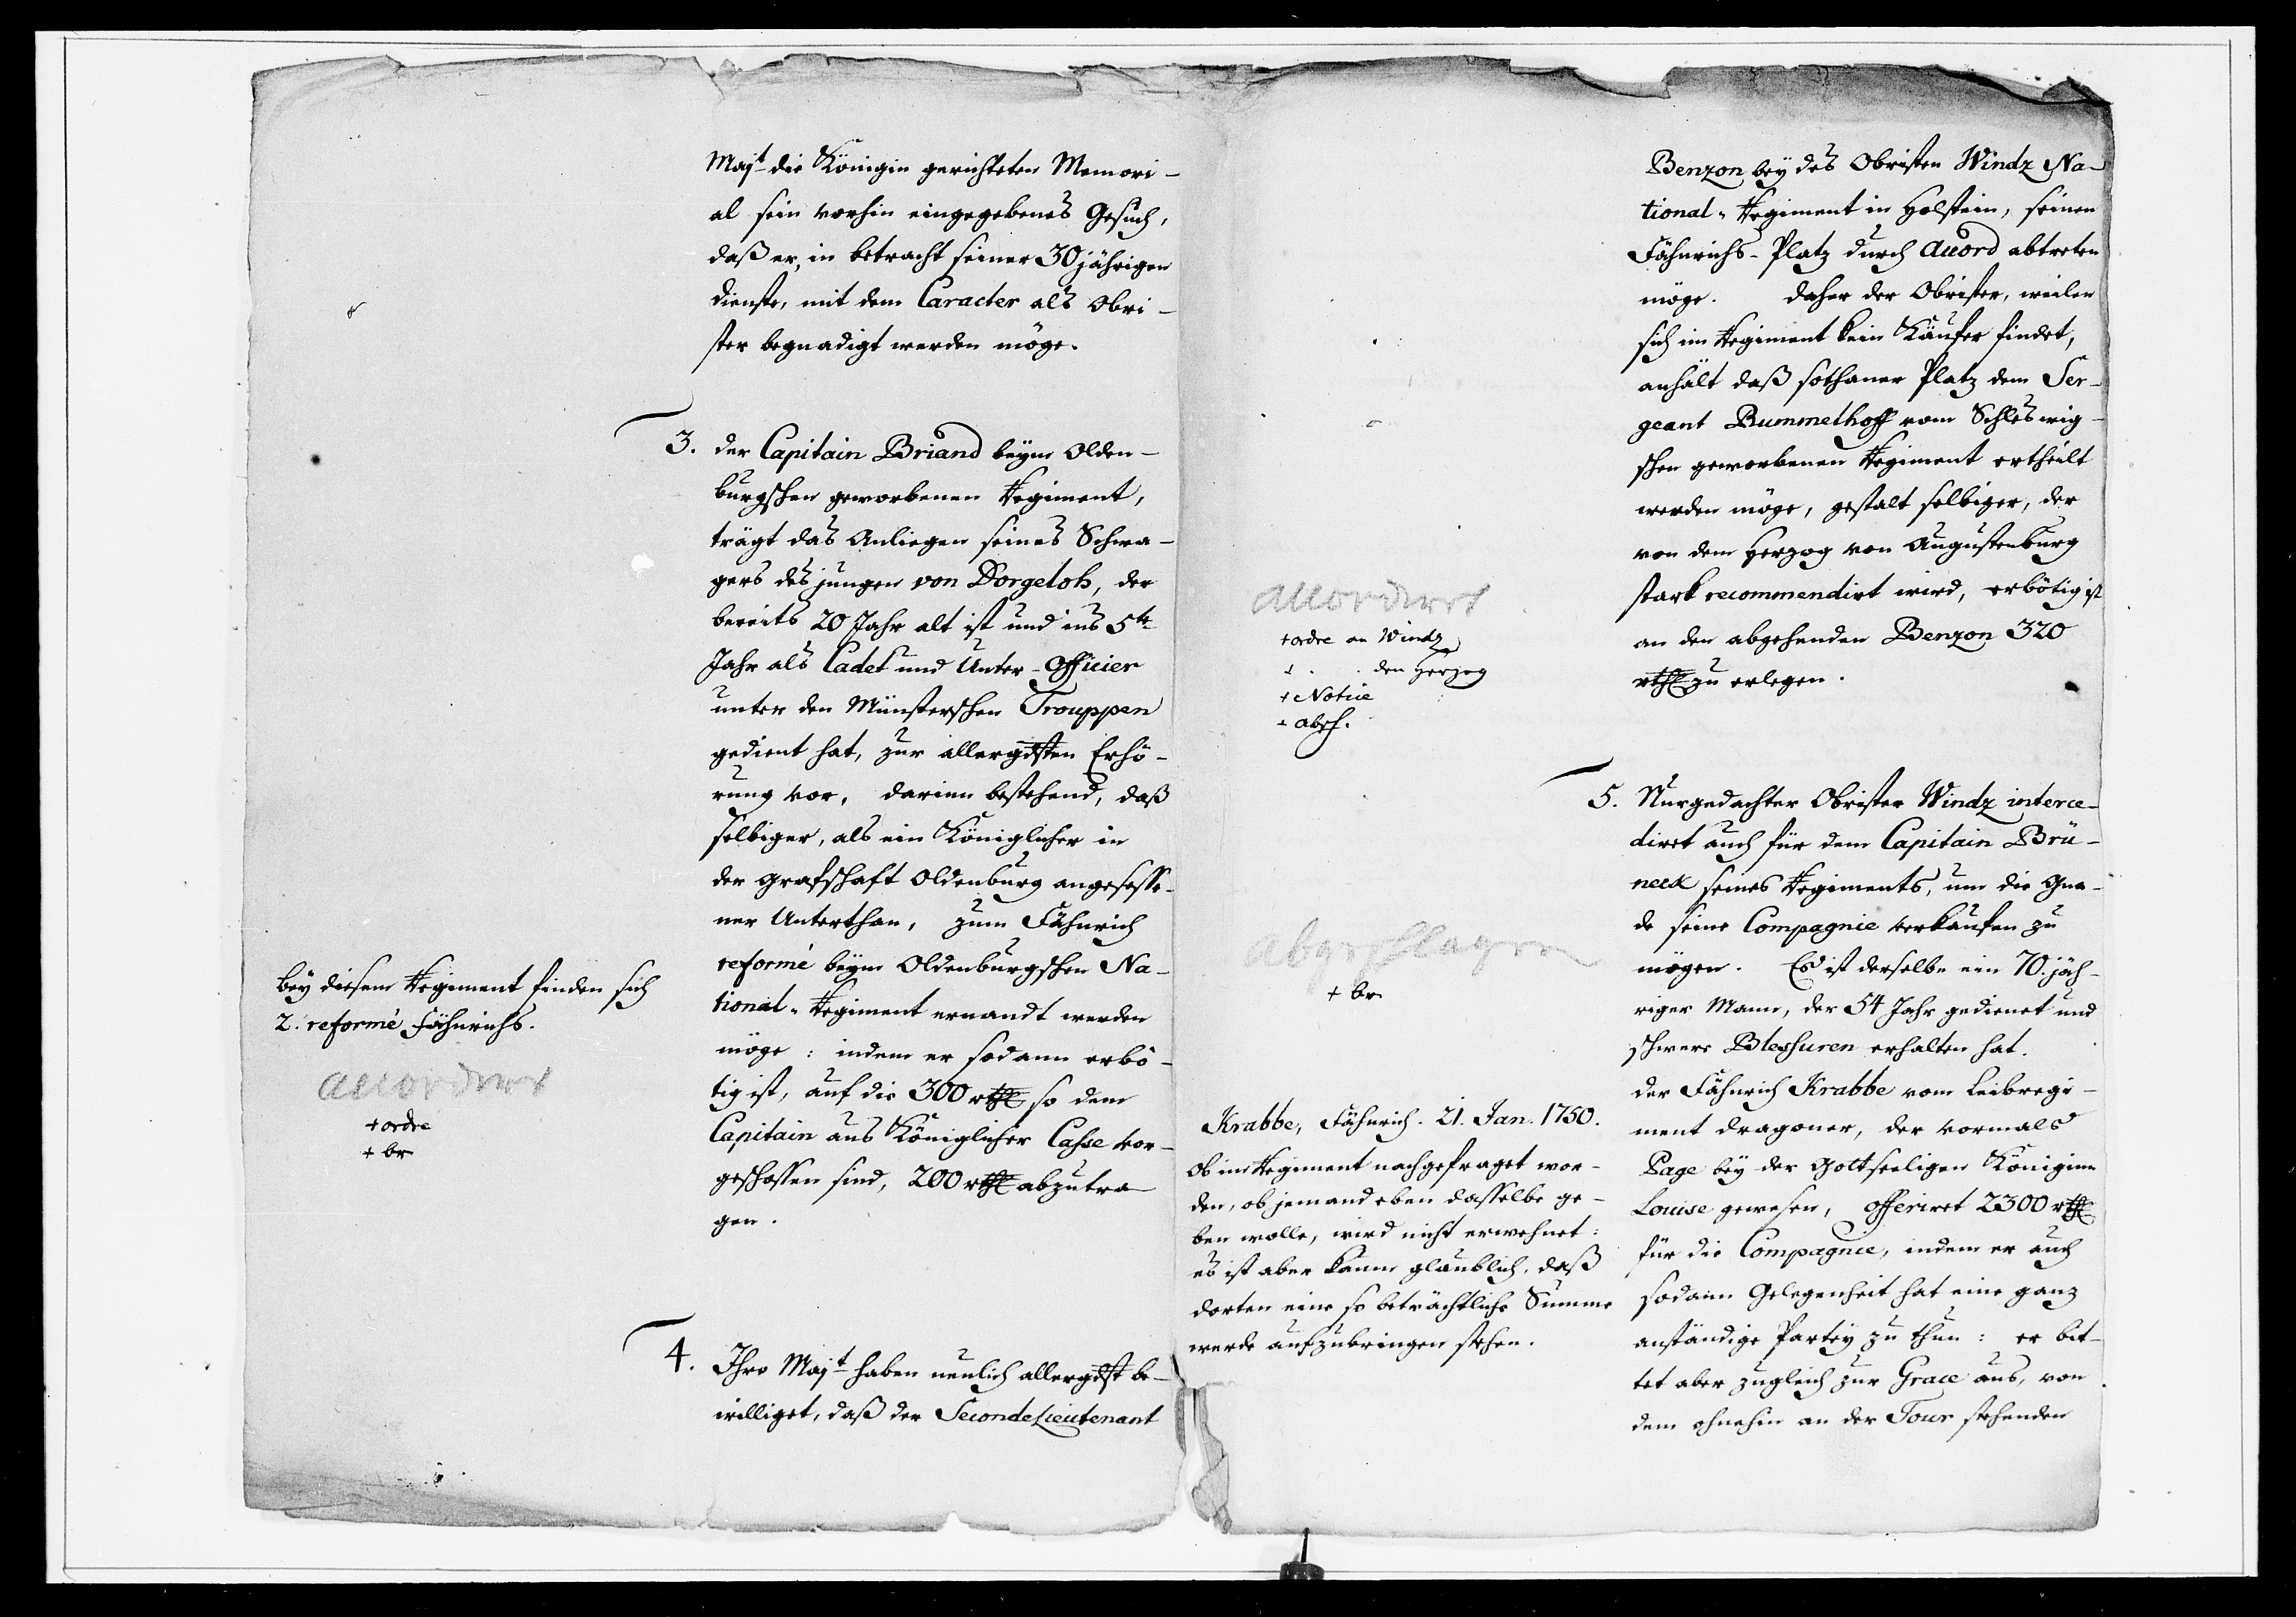 Majt die Königin gerichteten Memori-
al sein vorhin eingegebenes Gesuch,
daß er, in betracht seiner 30 jährigen
Dienste, mit dem Caracter als Obri-
ster begnadigt werden möge.
3. Der Capitain Briand beym Olden-
burgschen geworbenen Regiment,
trägt das Anliegen seines Schwa-
gers des jungen von Dorgeloh, der
bereits 20 Jahr alt ist und ins 5te
Jahr als Cadet und Unter-Officier
unter den Münsterschen Trouppen
gedient hat, zur allergdsten Erhö-
rung vor, darinn bestehend, daß
selbiger, als ein Königlicher in
der Grafschaft Oldenburg angesesse-
ner Unterthan, zum Fähnrich
reformé beym Oldenburgschen Na-
tional-Regiment ernandt werden
möge: indem er sodann erbö-
tig ist, auf die 300 rthl so dem
Capitain aus Königlicher Casse vor-
geschossen sind, 200 rthl abzutra-
gen.
bey diesem Regiment finden sich
2. reformé Fähnrichs.
accordirt
+ ordre
+ br
4. Ihro Majt haben neulich allergdst be-
williget, daß der Seconde Lieutenant
Benzon bey des Obristen Windz Na-
tional-Regiment in Holstein, seinen
Fähnrichs-Platz durch Accord abtreten
möge. Daher der Obrister, weilen
sich im Regiment kein Käufer findet,
anhält daß sothaner Platz dem Ser-
geant Bummelhoff vom Schleswig-
schen geworbenen Regiment ertheilt
werden möge, gestalt selbiger, der
von dem Herzog von Augustenburg
stark recommendirt wird, erbötig ist
an den abgehenden Benzon 320
rthl zu erlegen.
accordirt
+ ordre an Windz
+ . . den Herzog
+ Notice
+ absch.
5. Nurgedachter Obrister Windz interce-
diret auch für dem Capitain Brü-
neck seines Regiments, um die Gna-
de seine Compagnie verkaufen zu
mögen. Es ist derselbe ein 70. jäh-
riger Mann, der 54 Jahr gedienet und
schwere Blessuren erhalten hat.
Der Fähnrich Krabbe vom Leibregi-
ment Dragoner, der vormals
Page bey der Gottseeligen Königinn
Louise gewesen, offeriret 2300 rthl
für die Compagnie, indem er auch
sodann Gelegenheit hat eine ganz
anständige Partey zu thun: er bit-
tet aber zugleich zur Grace aus, von
dem ohnehin an der Tour stehenden
abgeschlagen
+ br
Krabbe, Fähnrich. 21. Jan. 1750.
Ob im Regiment nachgefraget wor-
den, ob jemand eben dasselbe ge-
ben wolle, wird nicht erwehnet:
es ist aber kaum glaublich, daß
dorten eine so beträchtliche Summe
werde aufzubringen stehen.